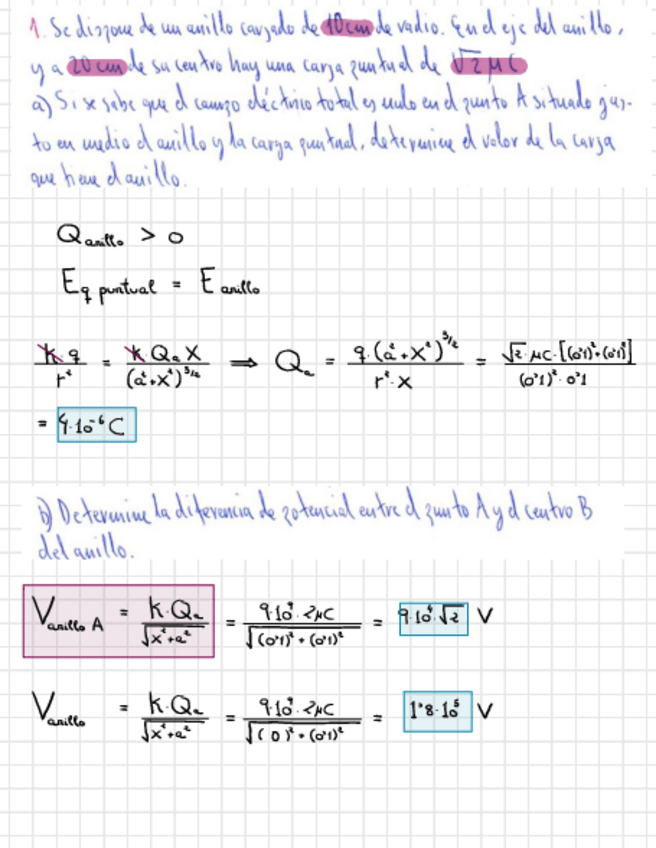 1. Se dispone de un anillo cargado de 10 cm de radio. En el eje del anillo,
y a 20 cm de su centro hay una carga puntual de √2 μC
a) Si se sabe que el campo eléctrico total es nulo en el punto A situado jus-
to en medio el anillo y la carga puntual, determine el valor de la carga
que tiene el anillo.
Q anillo > 0
E q puntual = E anillo
k·q / r² = k·Qa·x / (a²+x²)^3/2 ⇒ Qa = q·(a²+x²)^3/2 / r²·x = √2·μC·[(0'1)²+(0'1)²] / (0'1)²·0'1
= 4·10⁻⁶ C
b) Determine la diferencia de potencial entre el punto A y el centro B
del anillo.
V anillo A = k·Qa / √x²+a² = 9·10⁹·2μC / √(0'1)²+(0'1)² = 9·10⁴·√2 V
V anillo = k·Qa / √x²+a² = 9·10⁹·2μC / √(0)²+(0'1)² = 1'8·10⁵ V